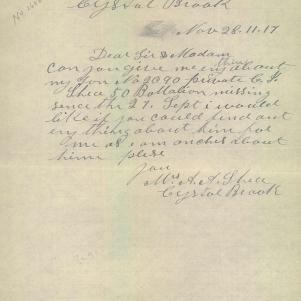 Crystal Brook
Nov 28.11.17
Dear Sir & Madam
can you give me eny thing about
my son No 2090 private C. J.
Shea 50 Battalion missing
since the 27. Sept i would
like if you could find out
eny thing about him for
me as i am anches about
him plese
you
Mrs A. A. Shea
Cystal Brook